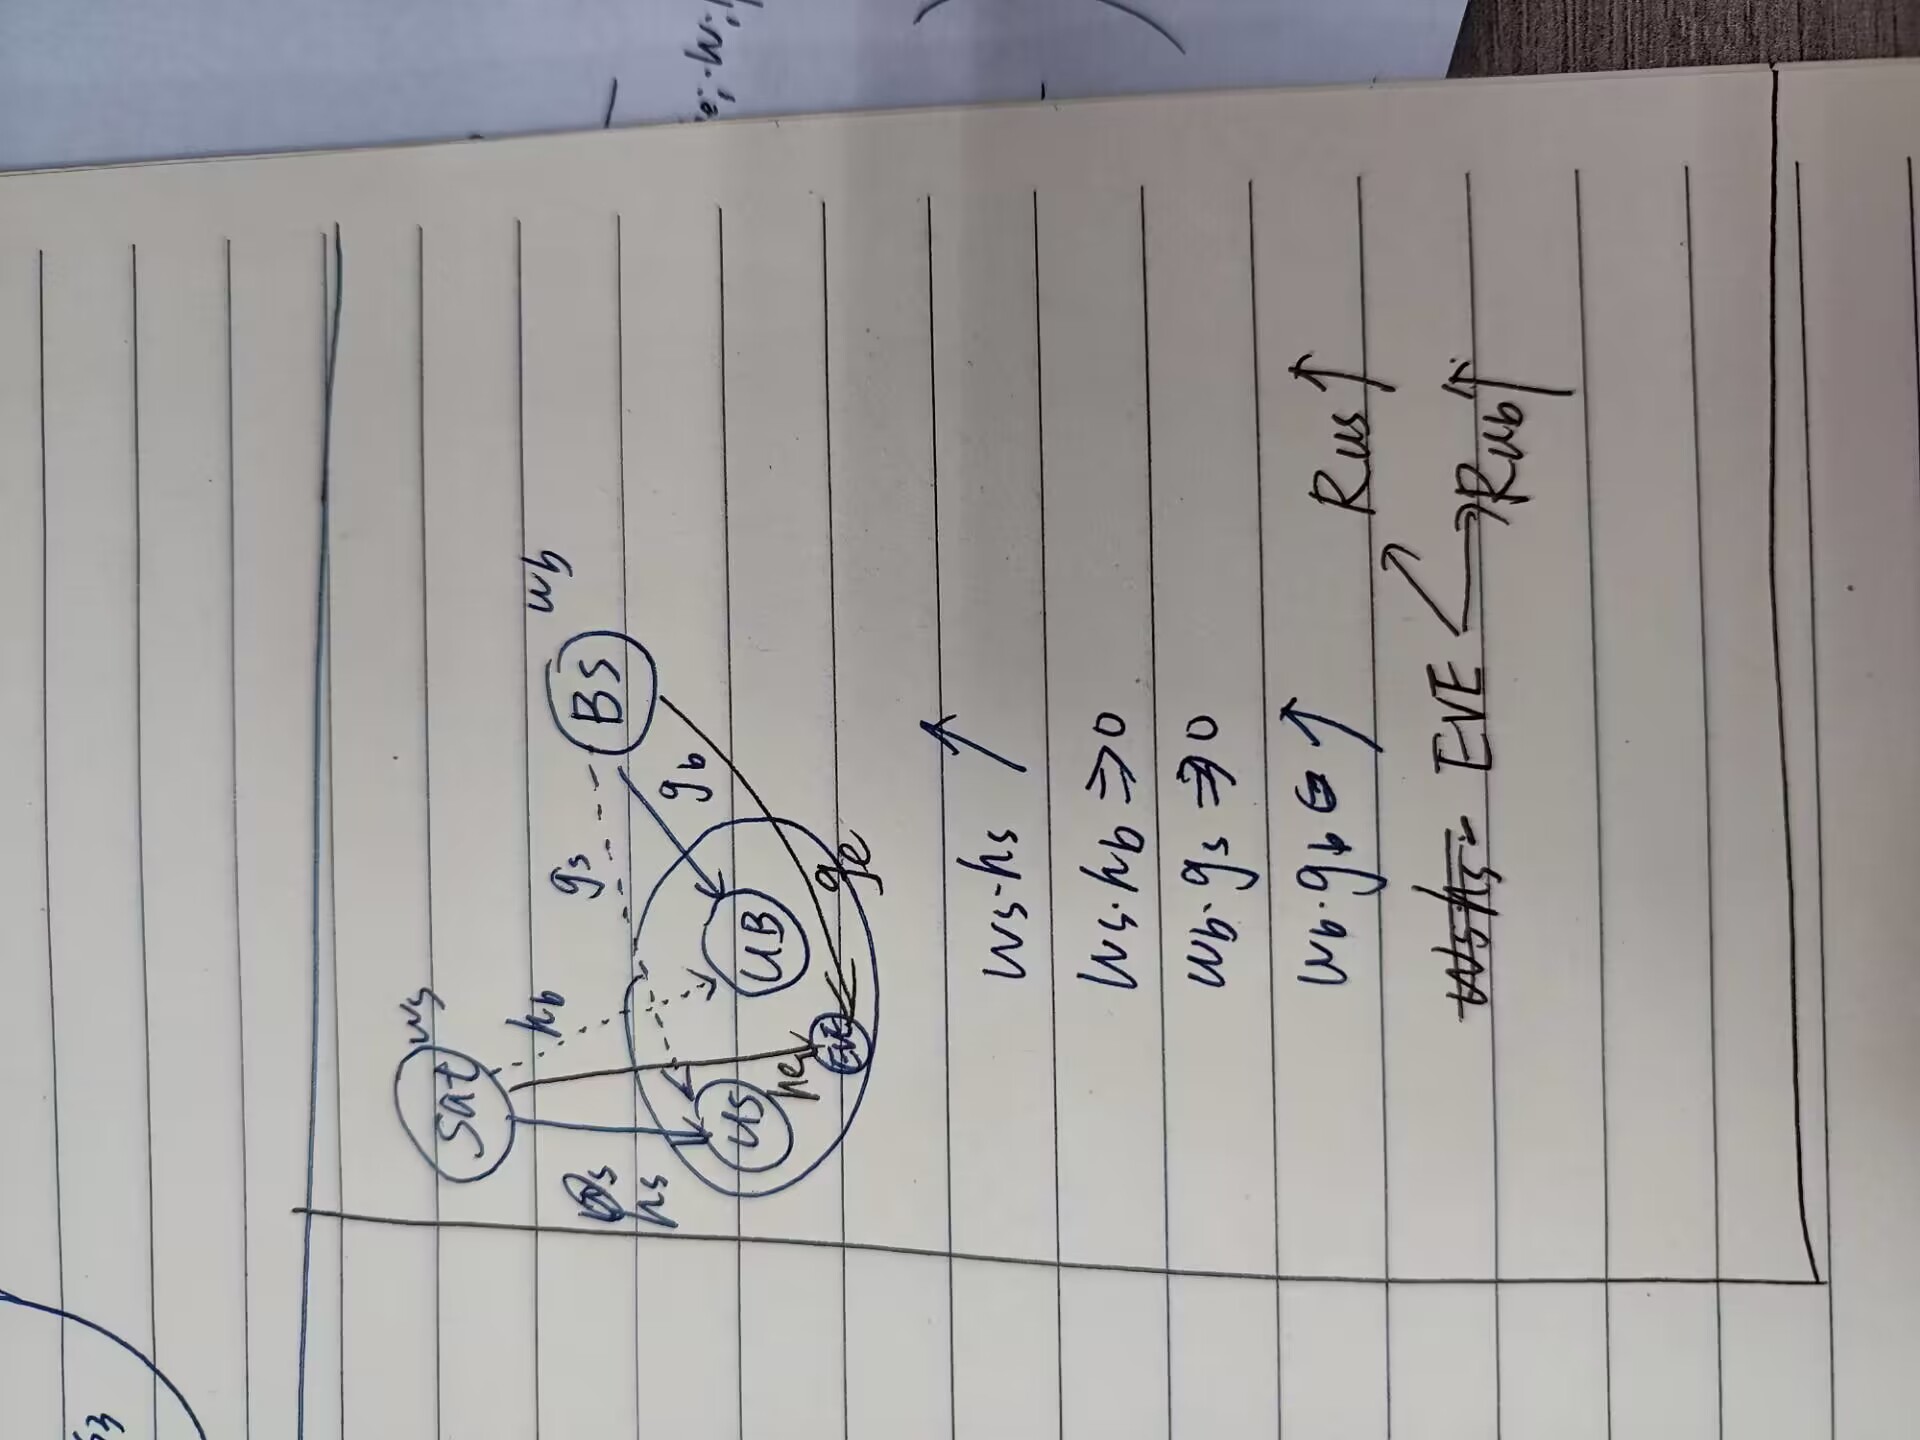 53
Sat ws
hb
gs
BS
wb
hs
gb
US
UB
he
EVE
ge
ws·hs ↗
ws·hb ⇒ 0
wb·gs ⇒ 0
wb·gb ↗
Rus ↑
EVE
Rub ↑